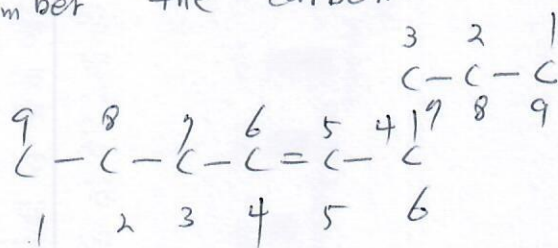 mber the carbon
3 2 1
C - C - C
9 8 7 6 5 4 7 8 9
C - C - C - C = C - C
1 2 3 4 5 6